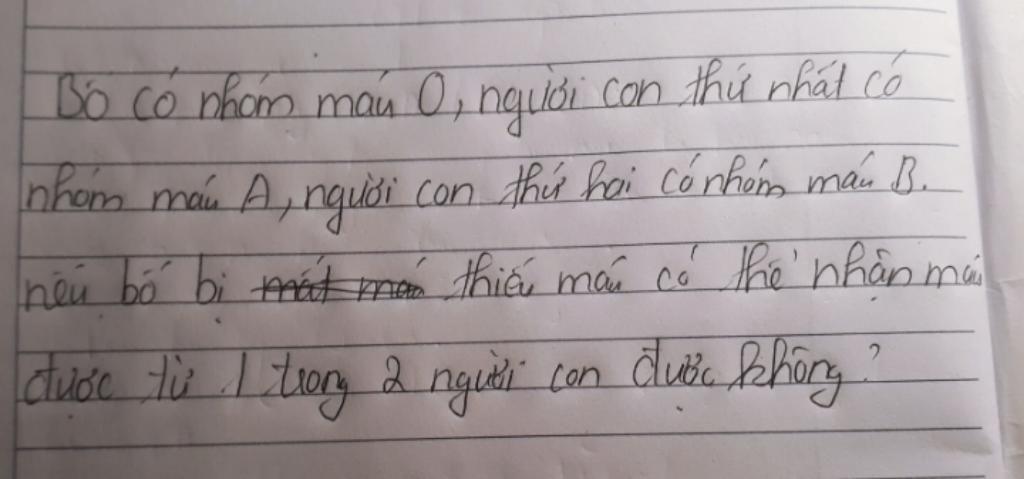 Bố có nhóm máu O, người con thứ nhất có
nhóm máu A, người con thứ hai có nhóm máu B.
nếu bố bị mất máu thiếu máu có thể nhận máu
được từ 1 trong 2 người con được không?